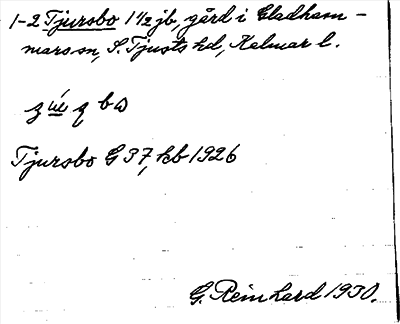 1-2 Tjursbo 1 1/2 jb, gård i Gladham-
mars sn, S. Tjusts hd, Kalmar l.
Tjursbo G 37, kb 1926
G. Reinhard 1930.